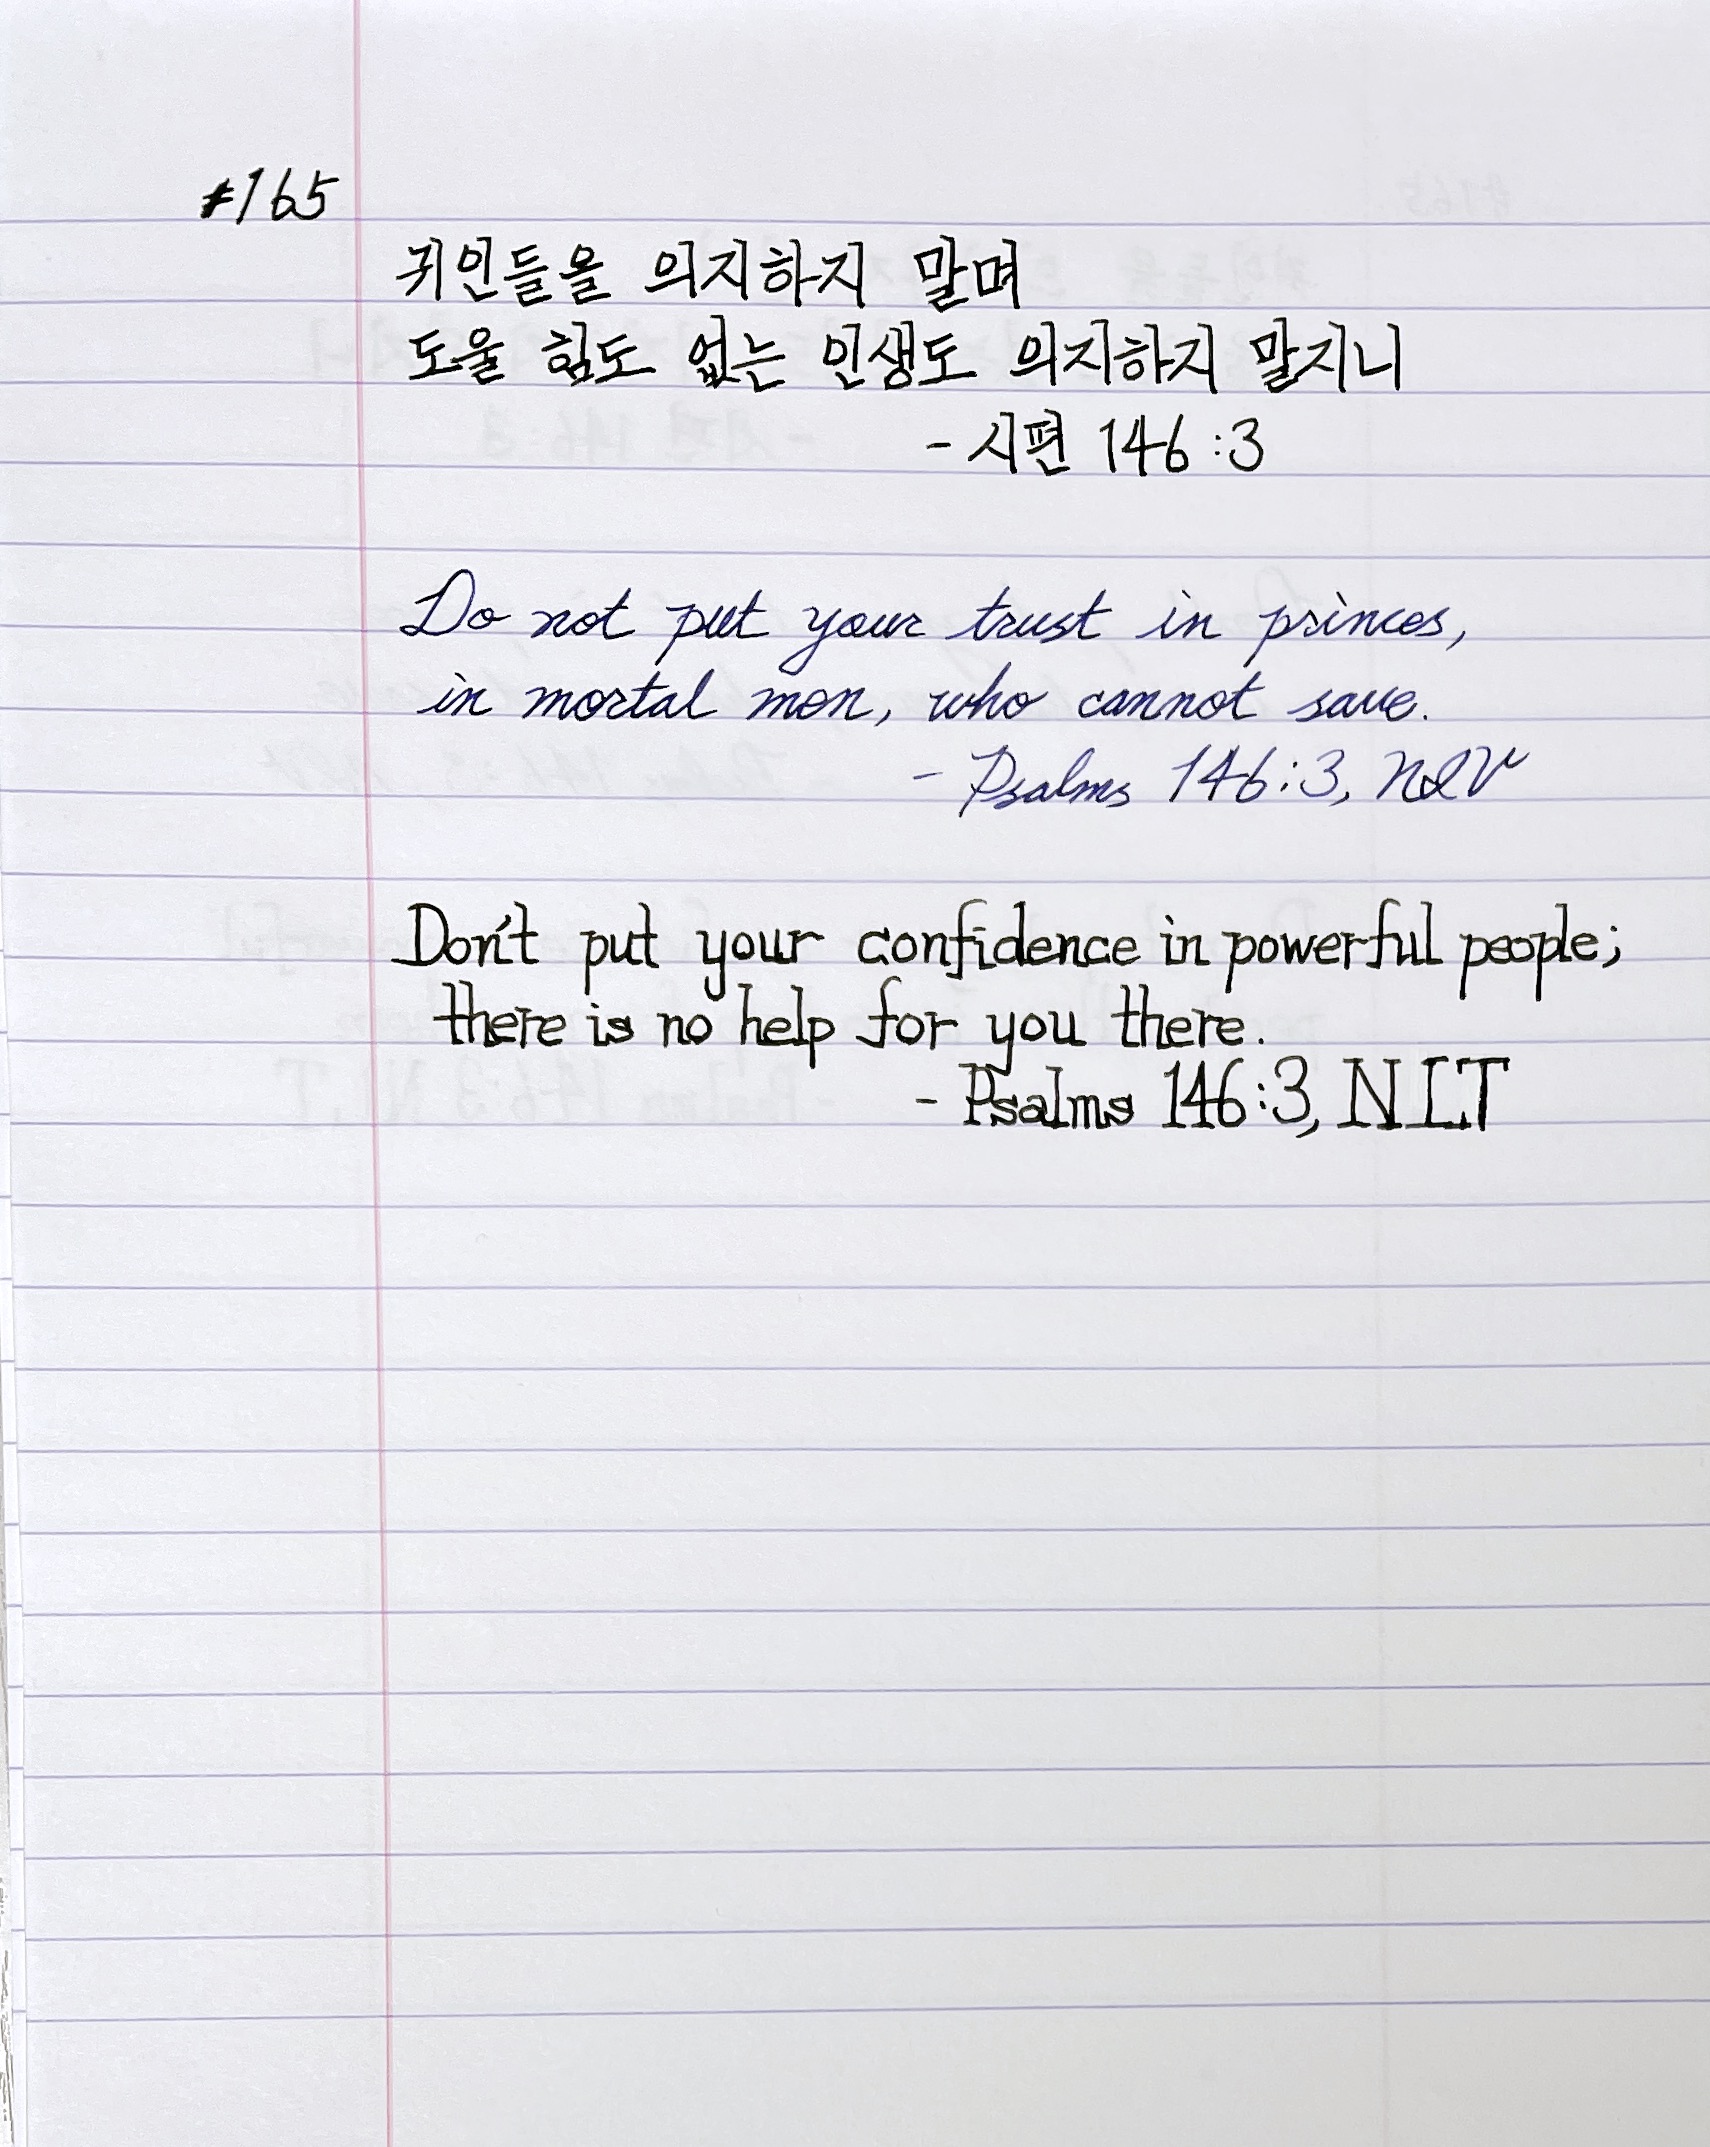 #165
귀인들을 의지하지 말며
도울 힘도 없는 인생도 의지하지 말지니
- 시편 146:3
Do not put your trust in princes,
in mortal men, who cannot save.
- Psalms 146:3, NIV
Don't put your confidence in powerful people;
there is no help for you there.
- Psalms 146:3, NLT